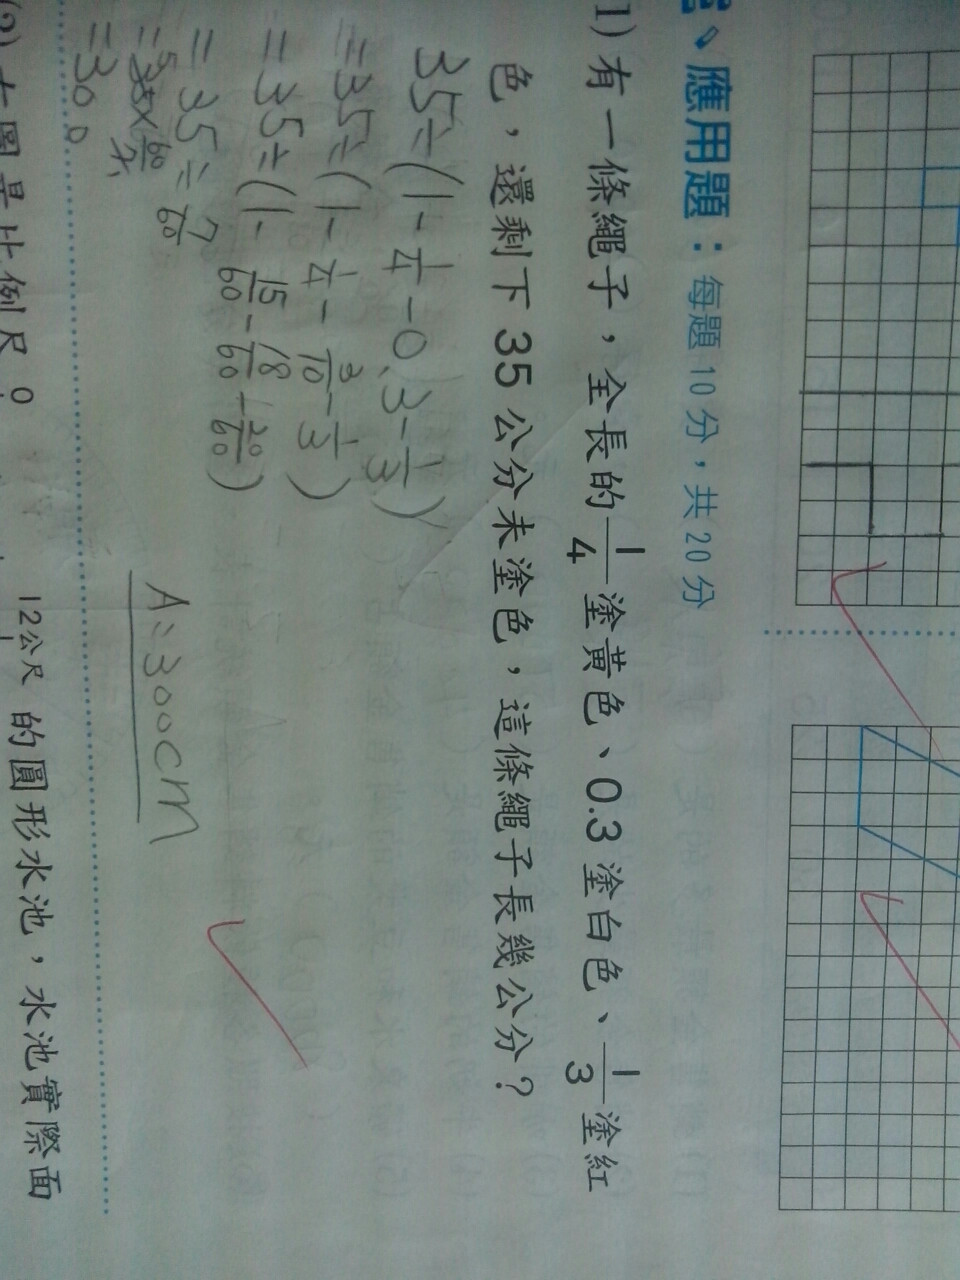 應用題：每題10分，共20分
1) 有一條繩子，全長的1/4塗黃色、0.3塗白色、1/3塗紅
色，還剩下35公分未塗色，這條繩子長幾公分？
35÷(1-1/4-0.3-1/3)
=35÷(1-1/4-3/10-1/3)
=35÷(1-15/60-18/60-20/60)
=35÷7/60
=300
A:300cm
12公尺 的圓形水池，水池實際面